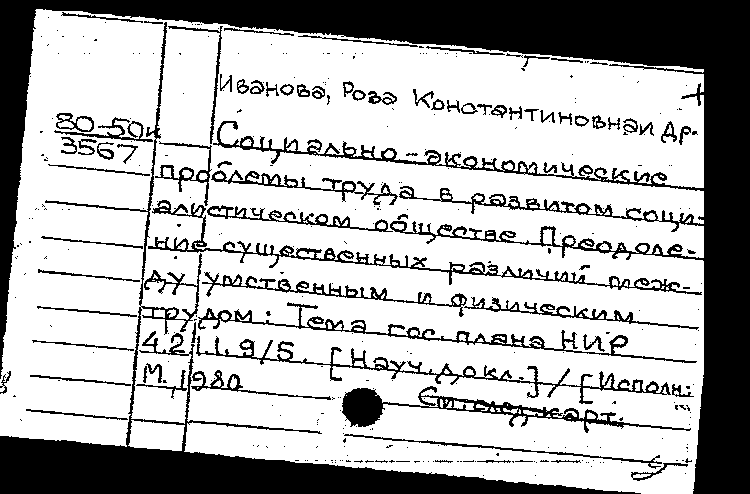 Иванова, Роза Константиновна и др.
80-50к
3567
Социально-экономические
проблемы труда в развитом соци-
алистическом обществе. Преодоле-
ние существенных различий меж-
ду умственным и физическим
трудом: Тема гос. плана НИР
4.2.1.1.9/5. [Науч. докл.] / [Исполн:
М., 1980
См. след. карт.